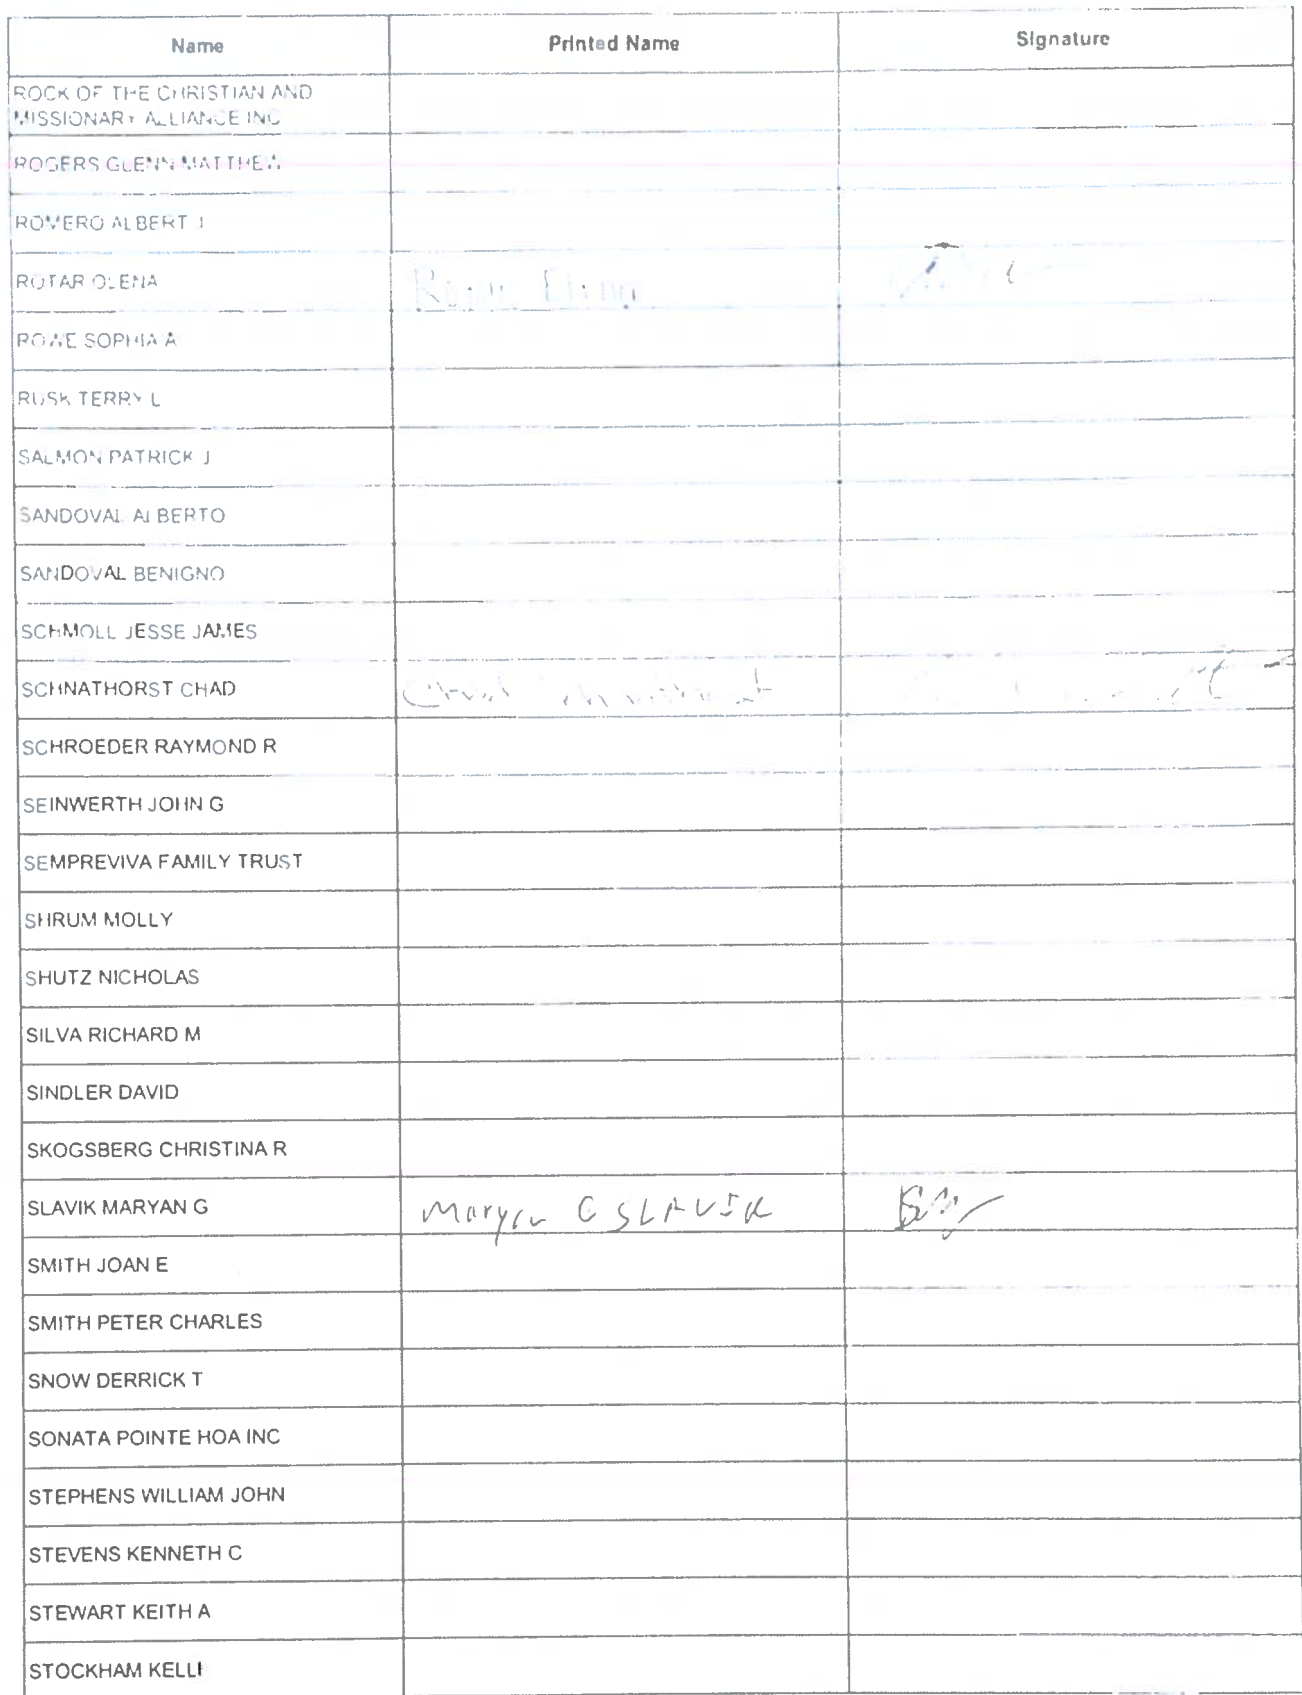 Name Printed Name Signature
ROCK OF THE CHRISTIAN AND
MISSIONARY ALLIANCE INC
ROGERS GLENN MATTHEW
ROMERO ALBERT J
ROTAR OLENA
ROWE SOPHIA A
RUSK TERRY L
SALMON PATRICK J
SANDOVAL ALBERTO
SANDOVAL BENIGNO
SCHMOLL JESSE JAMES
SCHNATHORST CHAD Chad
SCHROEDER RAYMOND R
SEINWERTH JOHN G
SEMPREVIVA FAMILY TRUST
SHRUM MOLLY
SHUTZ NICHOLAS
SILVA RICHARD M
SINDLER DAVID
SKOGSBERG CHRISTINA R
SLAVIK MARYAN G Maryan G SLAVIK
SMITH JOAN E
SMITH PETER CHARLES
SNOW DERRICK T
SONATA POINTE HOA INC
STEPHENS WILLIAM JOHN
STEVENS KENNETH C
STEWART KEITH A
STOCKHAM KELLI